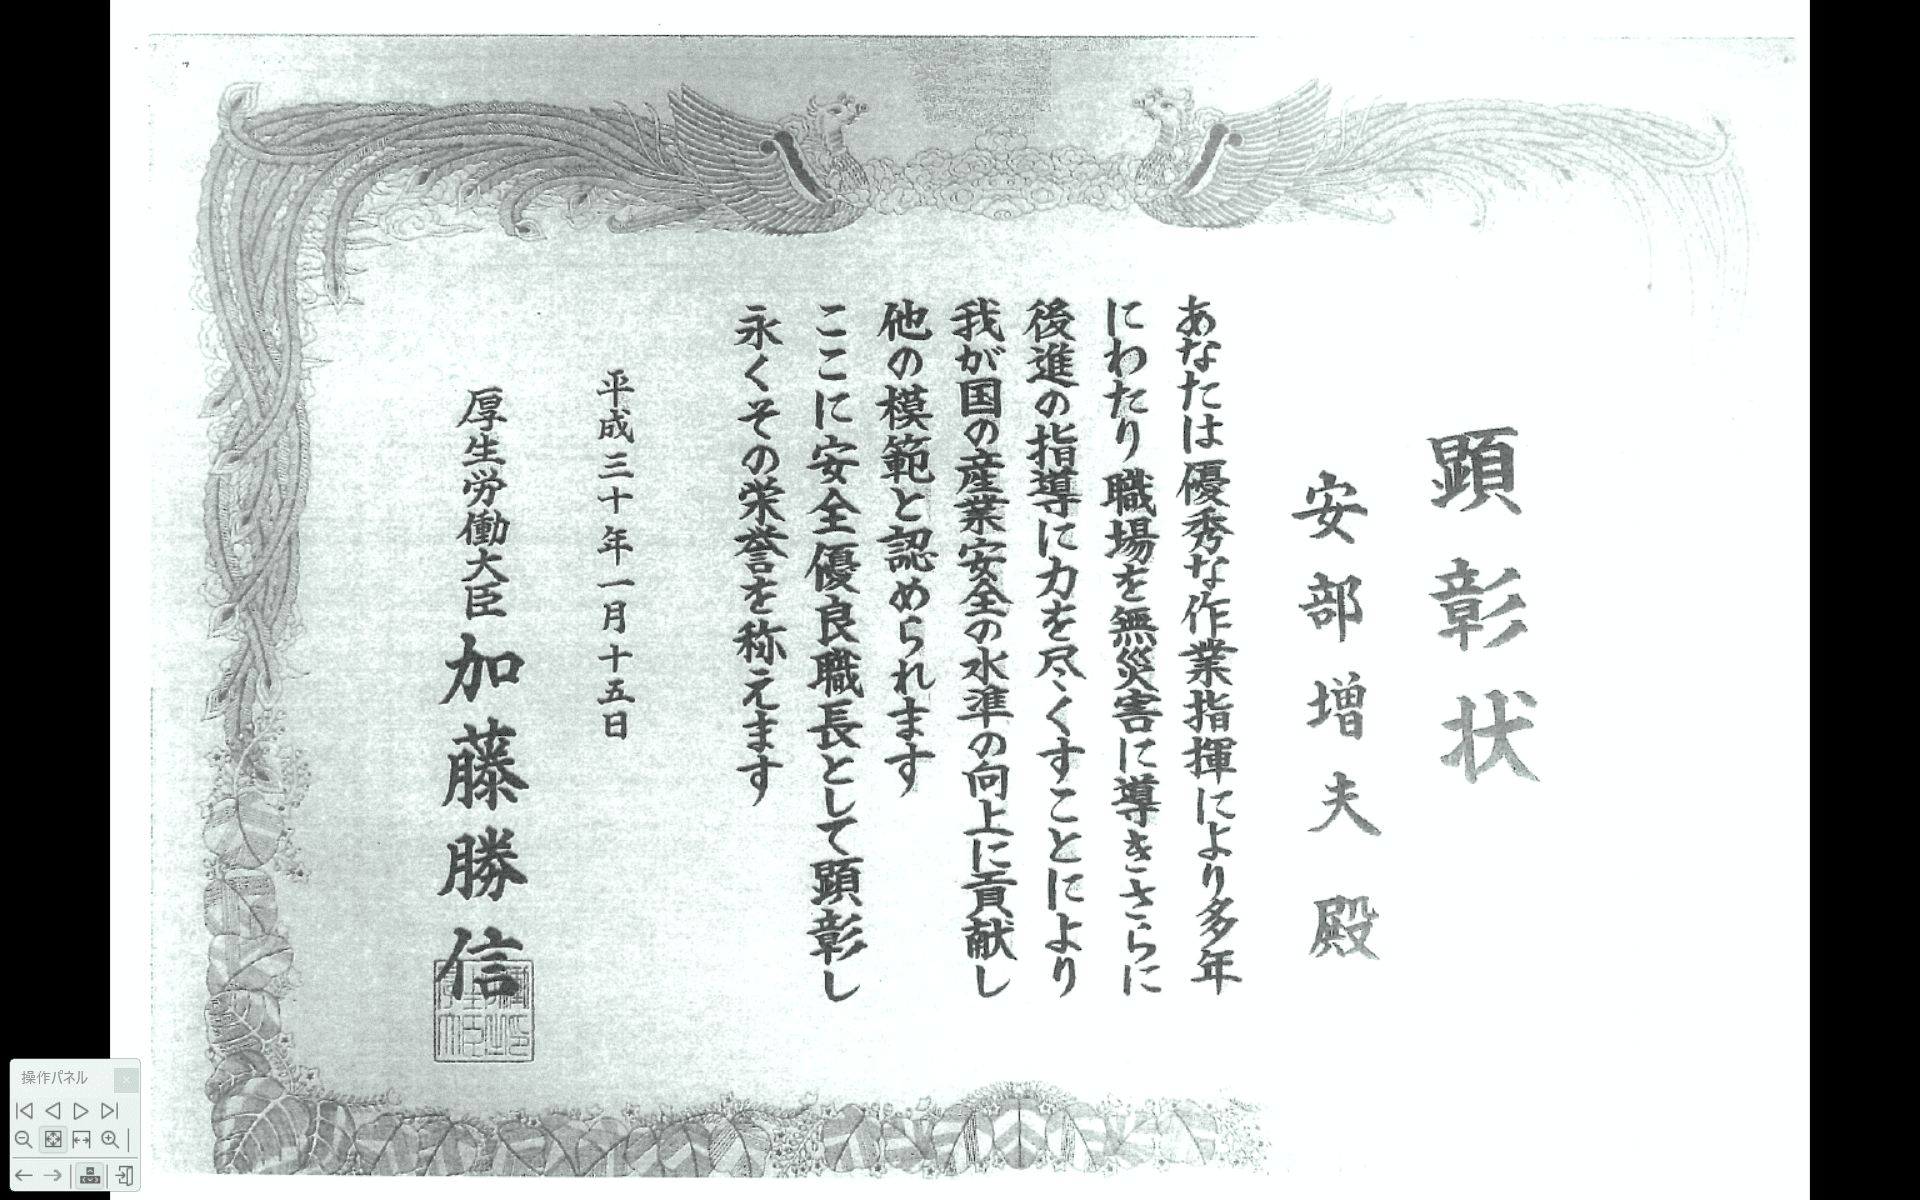 顕彰状
安部増夫殿
あなたは優秀な作業指揮により多年
にわたり職場を無災害に導きさらに
後進の指導に力を尽くすことにより
我が国の産業安全の水準の向上に貢献し
他の模範と認められます
ここに安全優良職長として顕彰し
永くその栄誉を称えます
平成三十年一月十五日
厚生労働大臣 加藤勝信
操作パネル